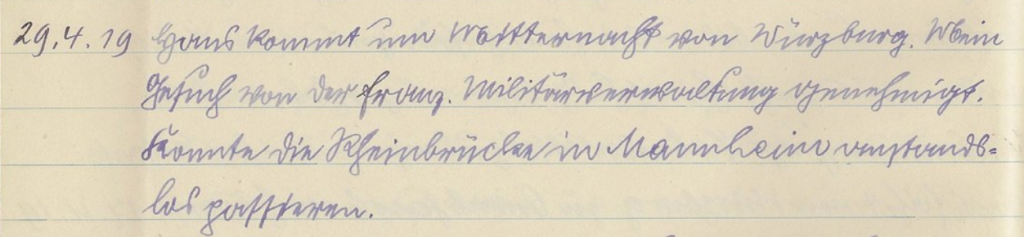 29.4.19 Hans kommt um Mitternacht von Würzburg. Mein
Gesuch von der franz. Militärverwaltung genehmigt.
Konnte die Rheinbrücke in Mannheim anstands-
los passieren.